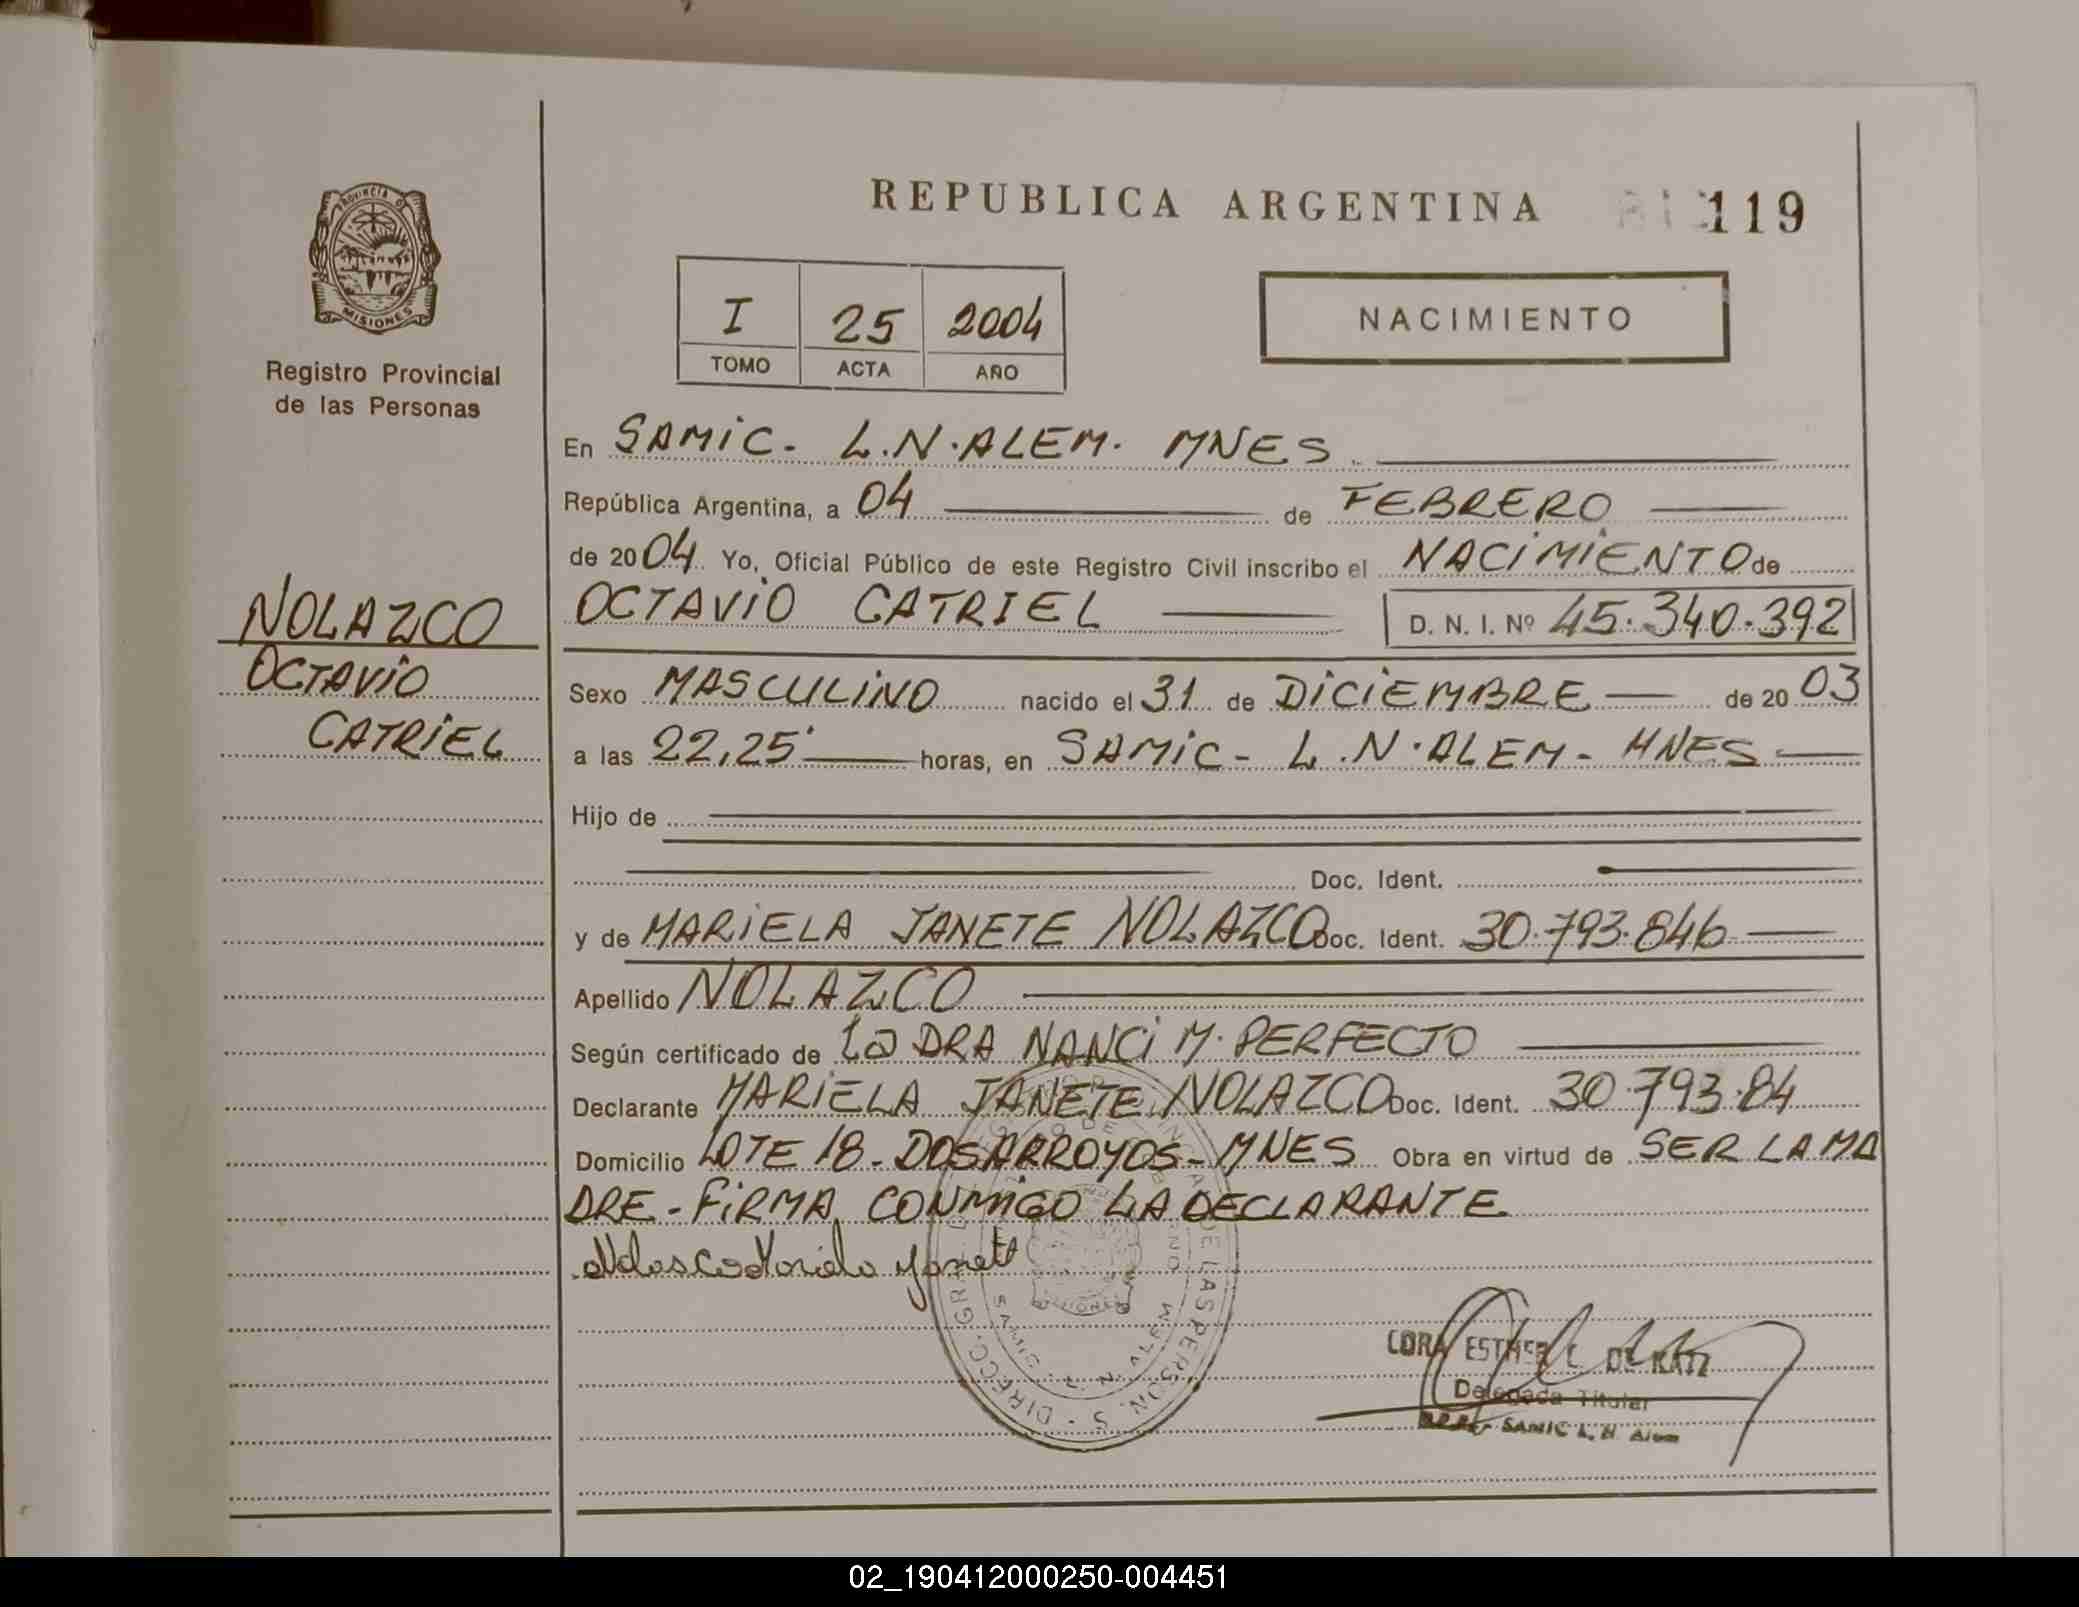 REPUBLICA ARGENTINA
119
PROVINCIA D
MISIONES
Registro Provincial
de las Personas
I 25 2004
TOMO ACTA AÑO
NACIMIENTO
En SAMIC - L.N.ALEM. MNES
República Argentina, a 04 de FEBRERO
de 2004 Yo, Oficial Público de este Registro Civil inscribo el NACIMIENTO de
OCTAVIO CATRIEL D. N. I. Nº 45.340.392
NOLAZCO
OCTAVIO
CATRIEL
Sexo MASCULINO nacido el 31 de DICIEMBRE de 2003
a las 22,25' horas, en SAMIC - L.N.ALEM - MNES
Hijo de
Doc. Ident.
y de MARIELA JANETE NOLAZCO Doc. Ident. 30.793.846
Apellido NOLAZCO
Según certificado de la DRA NANCI M. PERFECTO
Declarante MARIELA JANETE NOLAZCO Doc. Ident. 30.793.84
Domicilio LOTE 18 - DOS ARROYOS - MNES Obra en virtud de SER LA MA
DRE - FIRMA CONMIGO LA DECLARANTE
CORA ESTHER C. DE KATZ
Delegada Titular
SAMIC L. N. Alem
02_190412000250-004451